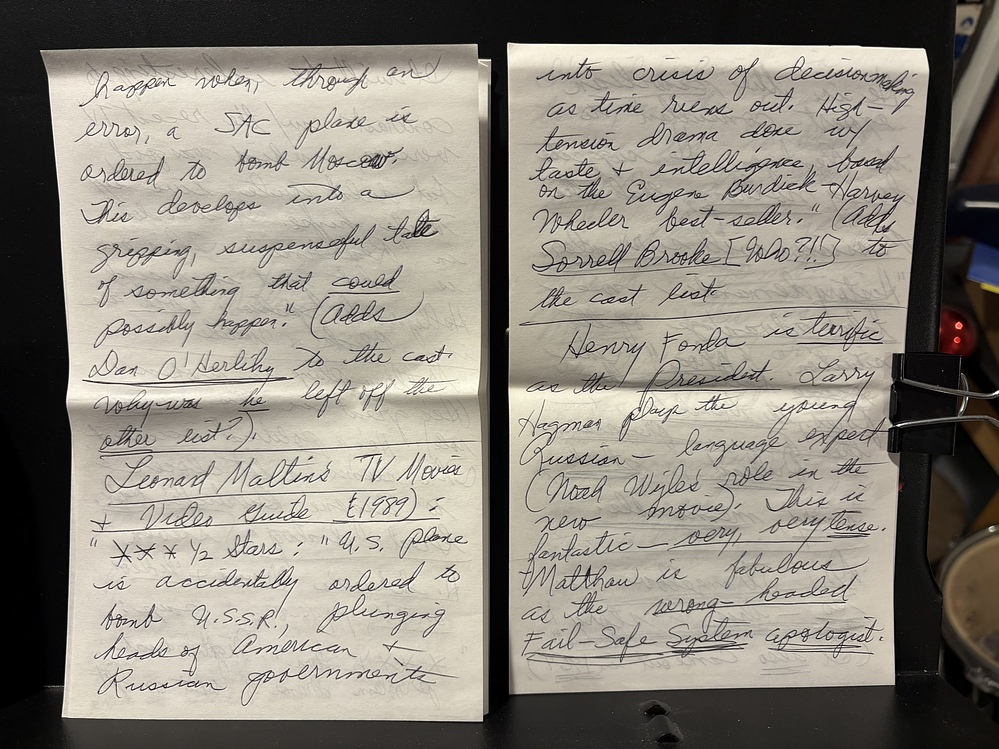 happen when, through an
error, a SAC plane is
ordered to bomb Moscow.
This develops into a
gripping, suspenseful tale
of something that could
possibly happen." (Adds
Dan O'Herlihy to the cast.
Why was he left off the
other list?).
Leonard Maltin's TV Movies
+ Video Guide (1989):
"*** 1/2 Stars: "U.S. plane
is accidentally ordered to
bomb U.S.S.R., plunging
heads of American +
Russian governments
into crisis of decisionmaking
as time runs out. High-
tension drama done w/
taste + intelligence, based
on the Eugene Burdick-Harvey
Wheeler best-seller." (Adds
Sorrell Brooke [Who?!!] to
the cast list.
Henry Fonda is terrific
as the President. Larry
Hagman plays the young
Russian-language expert
(Noah Wyle's role in the
new movie). This is
fantastic—very, very tense.
Matthau is fabulous
as the wrong-headed
Fail-Safe System apologist.